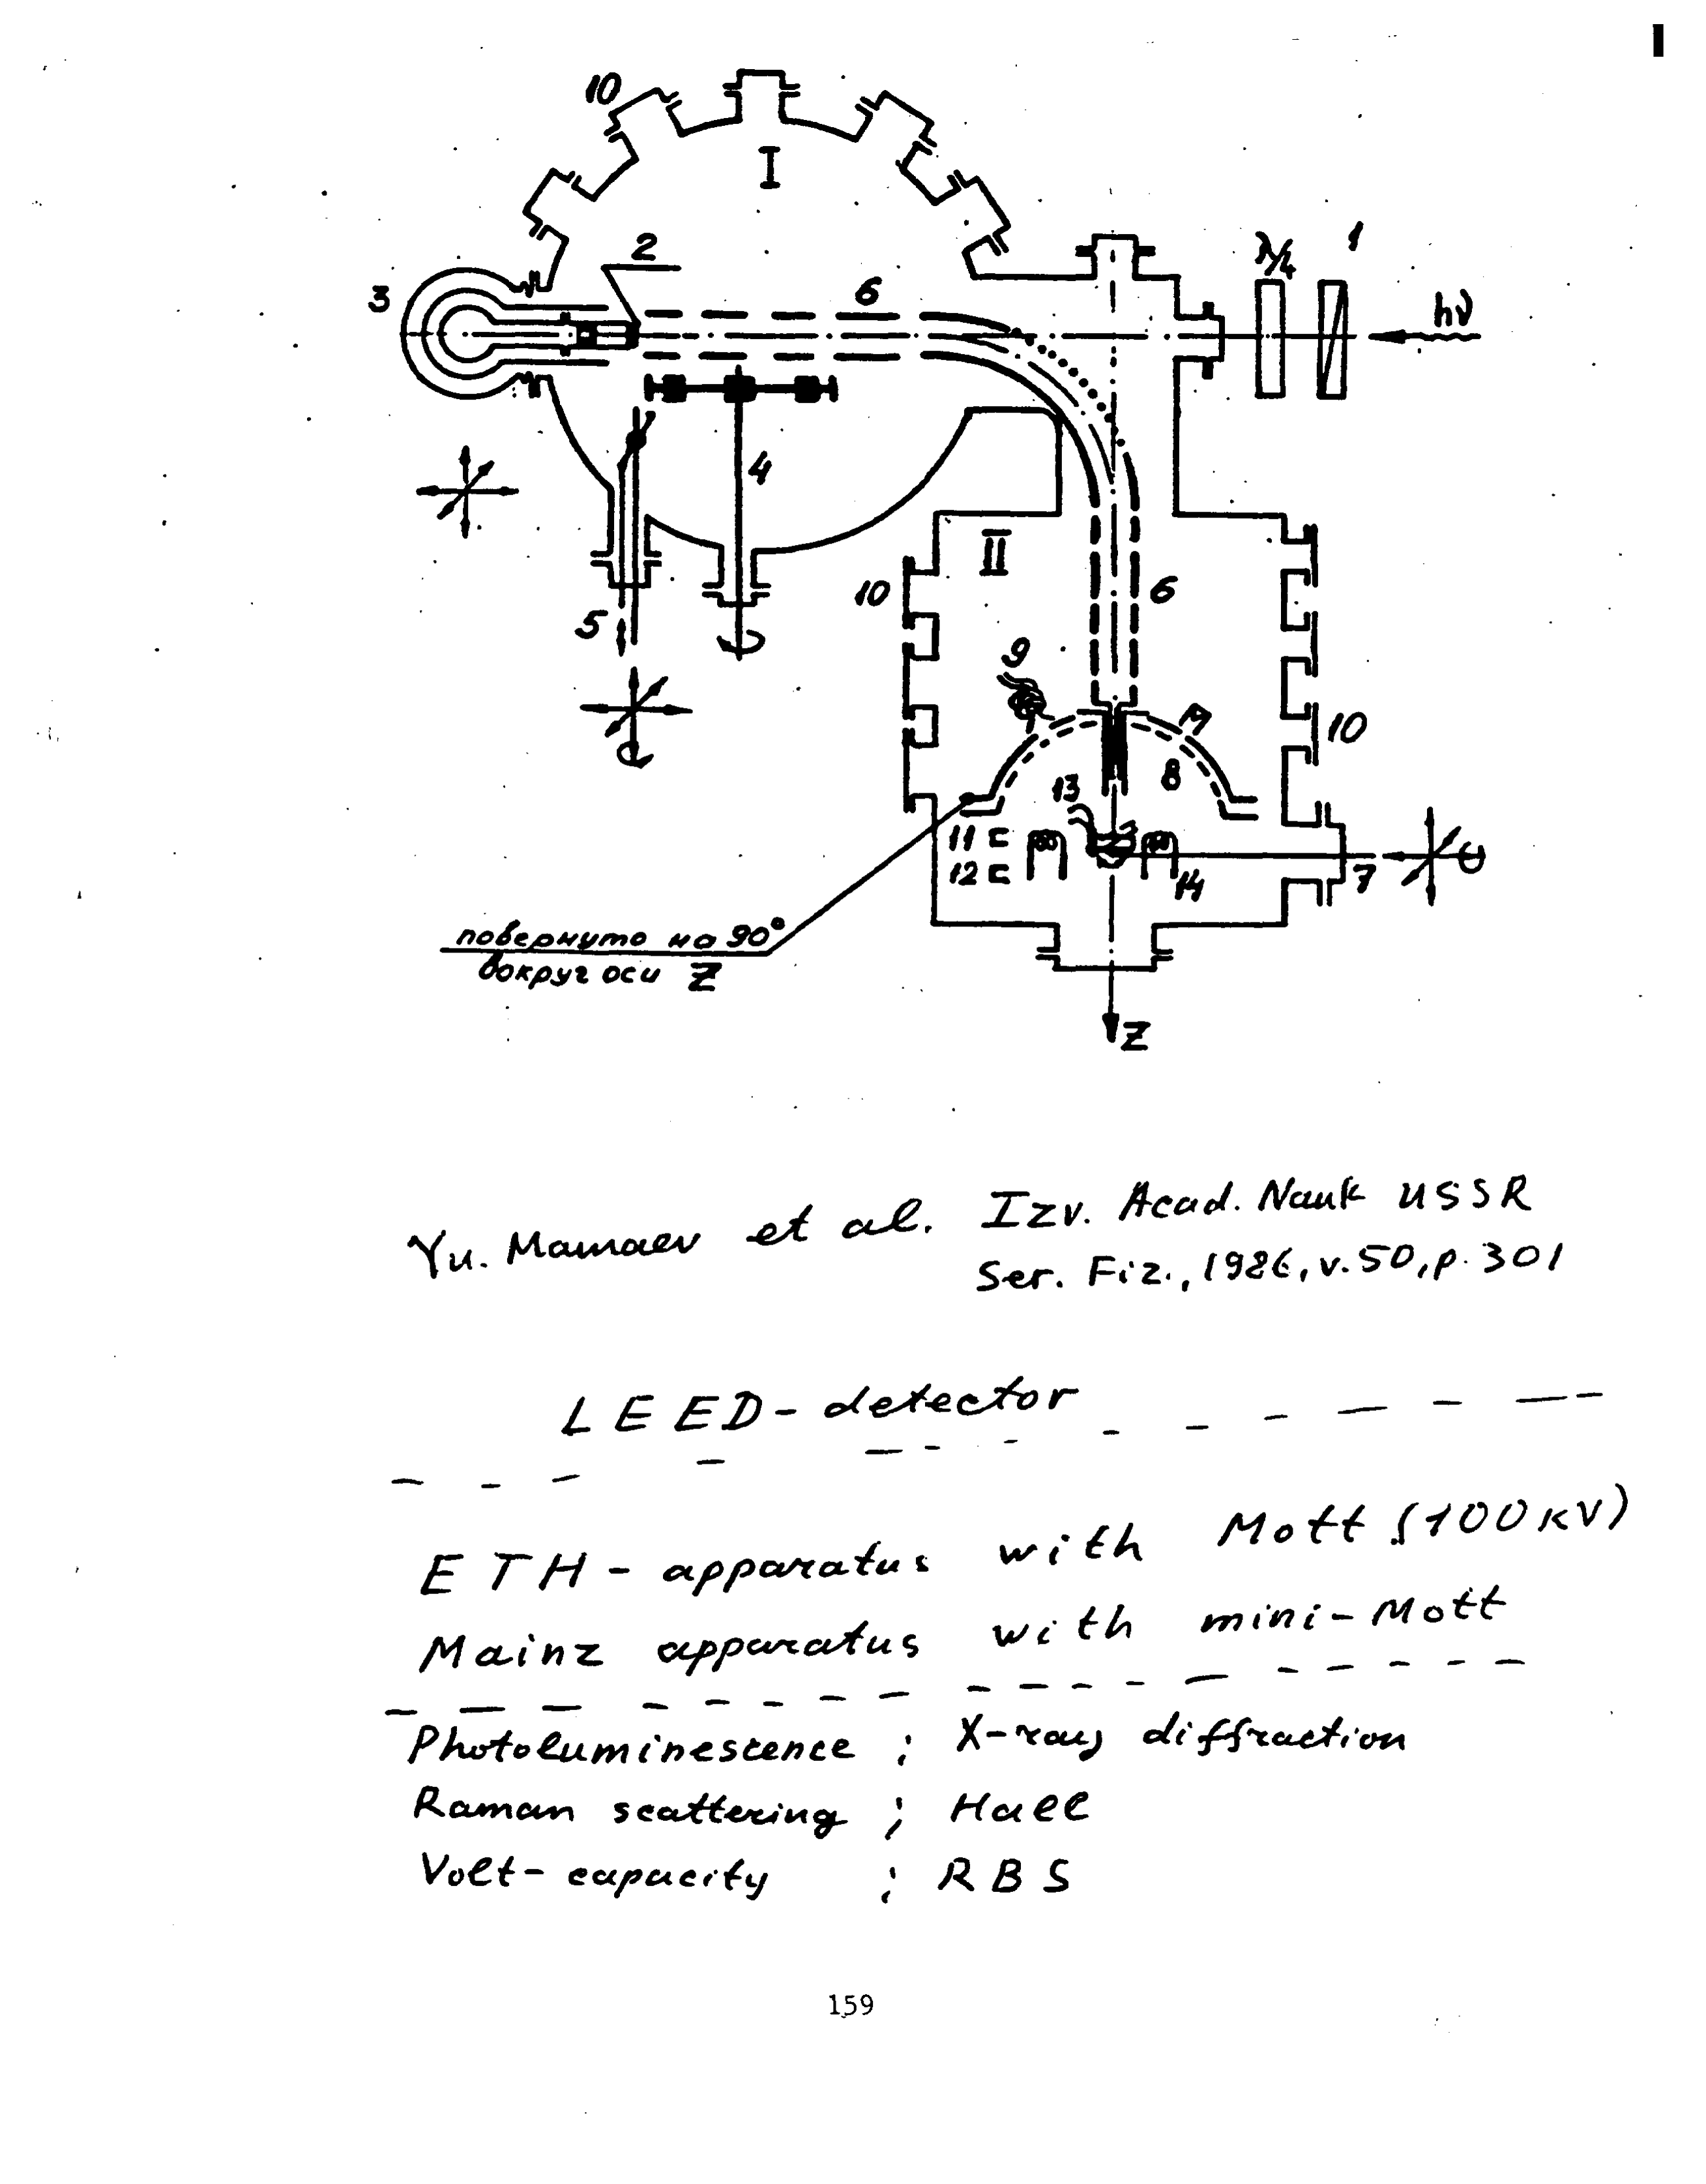 10
I
2
λ/4
1
3
6
hν
4
II
10
6
5
9
10
13
8
11
12
14
7
повернуто на 90°
вокруг оси Z
Z
Yu. Mamaev et al. Izv. Acad. Nauk USSR
Ser. Fiz., 1986, v.50, p. 301
LEED-detector
ETH-apparatus with Mott (100 KV)
Mainz apparatus with mini-Mott
Photoluminescence ; X-ray diffraction
Raman scattering ; Hall
Volt-capacity ; RBS
159